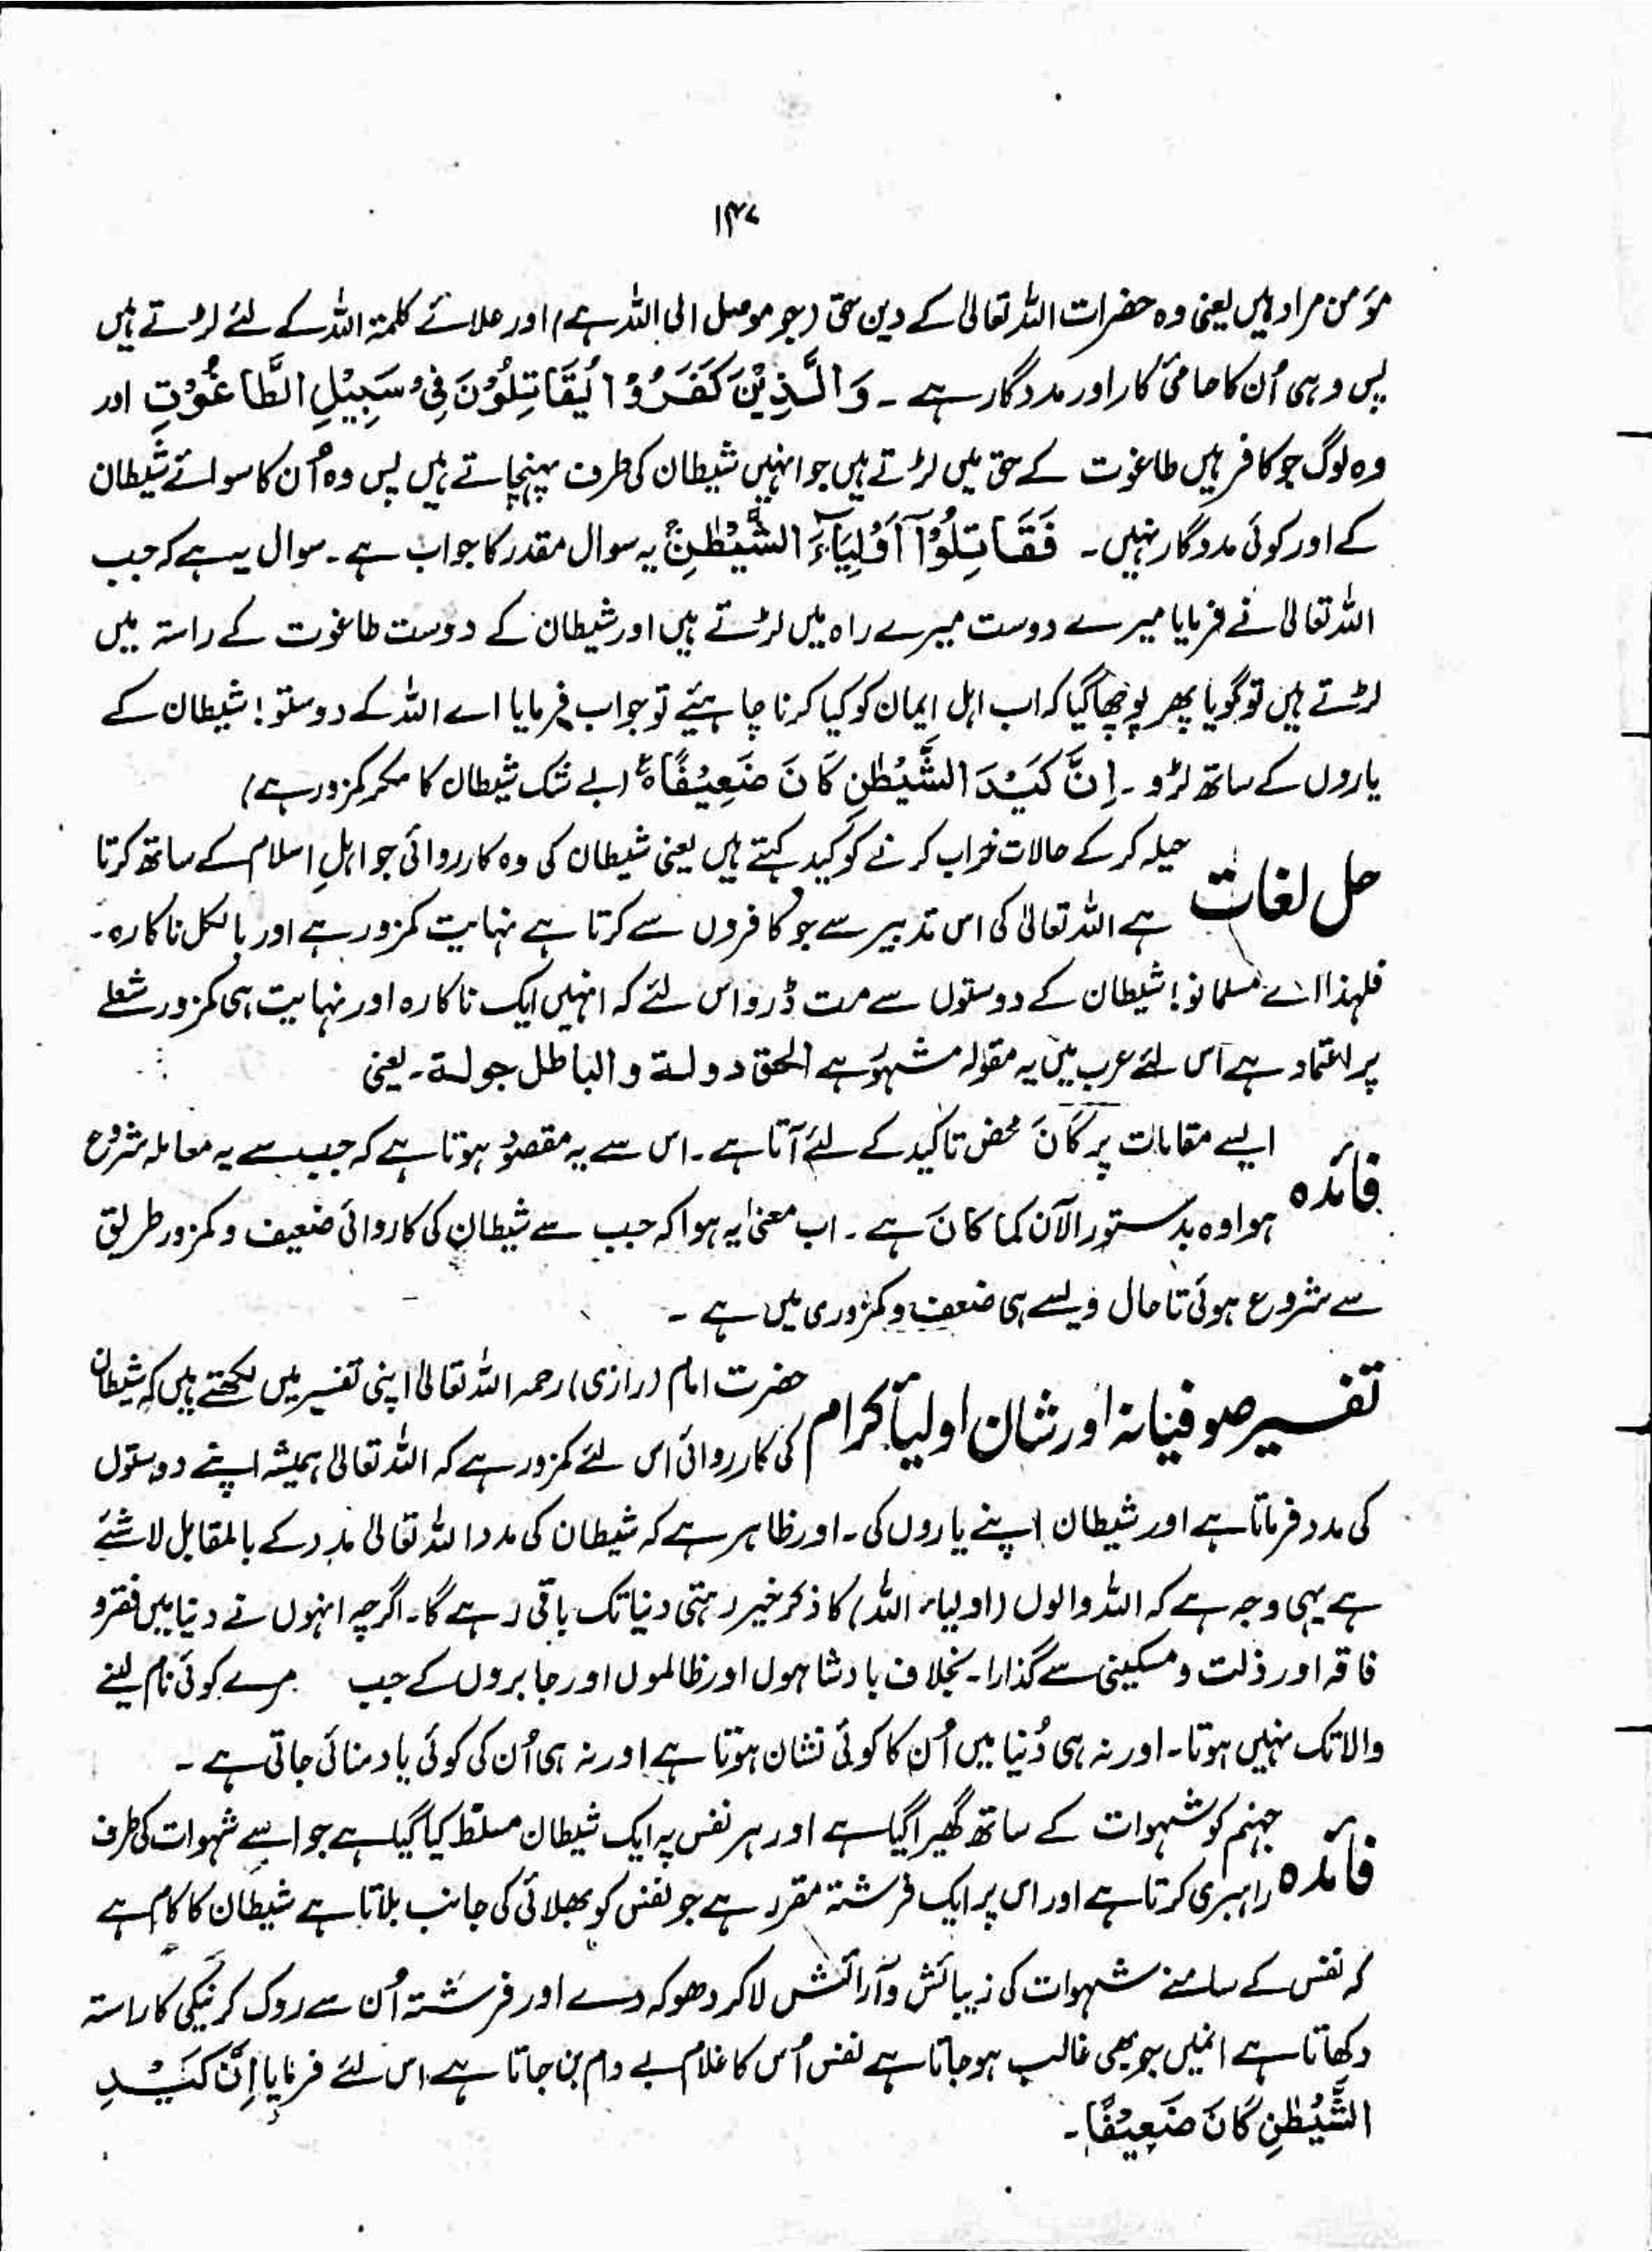 ۱۴۷
مؤمن مراد ہیں یعنی وہ حضرات اللہ تعالیٰ کے دین حق (جو موصل الی اللہ ہے) اور علائے کلمۃ اللہ کے لئے لڑتے ہیں
پس وہی اُن کا حامیٔ کار اور مددگار ہے ۔ وَالَّذِیْنَ کَفَرُوْا یُقَاتِلُوْنَ فِیْ سَبِیْلِ الطَّاغُوْتِ اور
وہ لوگ جو کافر ہیں طاغوت کے حق میں لڑتے ہیں جو انہیں شیطان کی طرف پہنچاتے ہیں پس وہ اُن کا سوائے شیطان
کے اور کوئی مددگار نہیں ۔ فَقَاتِلُوْٓا اَوْلِیَآءَ الشَّیْطٰنِ یہ سوال مقدر کا جواب ہے ۔ سوال یہ ہے کہ جب
اللہ تعالیٰ نے فرمایا میرے دوست میرے راہ میں لڑتے ہیں اور شیطان کے دوست طاغوت کے راستہ میں
لڑتے ہیں تو گویا پھر پوچھا گیا کہ اب اہل ایمان کو کیا کرنا چاہیئے تو جواب فرمایا اے اللہ کے دوستو! شیطان کے
یاروں کے ساتھ لڑو ۔ اِنَّ کَیْدَ الشَّیْطٰنِ کَانَ ضَعِیْفًا ہ (بے شک شیطان کا مکر کمزور ہے)
حل لغات حیلہ کر کے حالات خراب کرنے کو کید کہتے ہیں یعنی شیطان کی وہ کارروائی جو اہلِ اسلام کے ساتھ کرتا
ہے اللہ تعالیٰ کی اس تدبیر سے جو کافروں سے کرتا ہے نہایت کمزور ہے اور بالکل ناکارہ۔
فلہذا اے مسلمانو! شیطان کے دوستوں سے مت ڈرو اس لئے کہ انہیں ایک ناکارہ اور نہایت ہی کمزور شعلے
پر اعتماد ہے اس لئے عرب میں یہ مقولہ مشہور ہے الحق دولۃ و الباطل جولۃ ۔ یعنی
فائدہ ایسے مقامات پر کَانَ محض تاکید کے لئے آتا ہے ۔ اس سے یہ مقصود ہوتا ہے کہ جب سے یہ معاملہ شروع
ہوا وہ بدستور الآن کما کانَ ہے ۔ اب معنیٰ یہ ہوا کہ جب سے شیطان کی کاروائی ضعیف و کمزور طریق
سے شروع ہوئی تا حال ویسے ہی ضعف و کمزوری میں ہے ۔
تفسیر صوفیانہ اور شان اولیأ کرام حضرت امام (رازی) رحمہ اللہ تعالیٰ اپنی تفسیر میں لکھتے ہیں کہ شیطان
کی کارروائی اس لئے کمزور ہے کہ اللہ تعالیٰ ہمیشہ اپنے دوستوں
کی مدد فرماتا ہے اور شیطان اپنے یاروں کی ۔ اور ظاہر ہے کہ شیطان کی مدد اللہ تعالیٰ مدد کے بالمقابل لا شئے
ہے یہی وجہ ہے کہ اللہ والوں (اولیاء اللہ) کا ذکر خیر رہتی دنیا تک باقی رہے گا۔ اگرچہ انہوں نے دنیا میں فقر و
فاقہ اور ذلت و مسکینی سے گذارا ۔ بخلاف بادشاہوں اور ظالموں اور جابروں کے جب مرے کوئی نام لینے
والا تک نہیں ہوتا ۔ اور نہ ہی دُنیا میں اُن کا کوئی نشان ہوتا ہے اور نہ ہی اُن کی کوئی یاد منائی جاتی ہے ۔
فائدہ جہنم کو شہوات کے ساتھ گھیرا گیا ہے اور ہر نفس پہ ایک شیطان مسلّط کیا گیا ہے جو اسے شہوات کی طرف
راہبری کرتا ہے اور اس پر ایک فرشتہ مقرر ہے جو نفس کو بھلائی کی جانب بلاتا ہے شیطان کا کام ہے
کہ نفس کے سامنے شہوات کی زیبائش و آرائش لا کر دھوکہ دے اور فرشتہ اُن سے روک کر نیکی کا راستہ
دکھاتا ہے انمیں جو بھی غالب ہو جاتا ہے نفس اُس کا غلام بے دام بن جاتا ہے اس لئے فرمایا اِنَّ کَیْدَ
الشَّیْطٰنِ کَانَ ضَعِیْفًا ۔